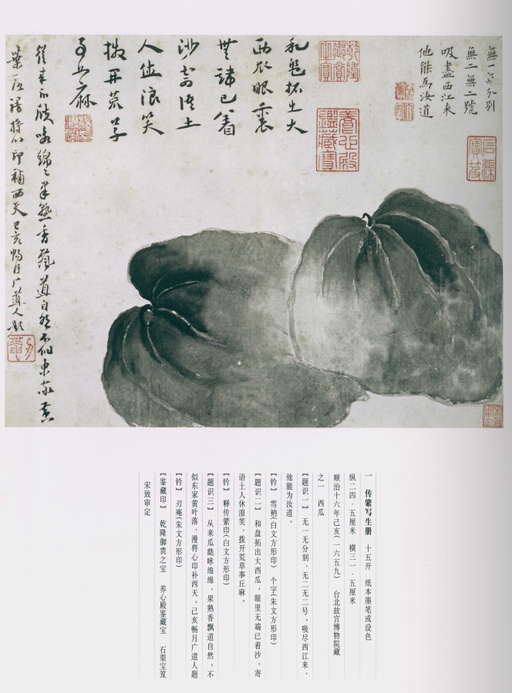 無一無分別
無二無二號
吸盡西江來
他能為汝道
石渠寶笈
養心殿鑑藏寶
和盤拓出大
西瓜眼裏
無端已着
沙寄語土
人休浪笑
撥開荒草
事丘麻
從來瓜瓞咏綿綿果熟香飄道自然不似東家黃
葉落謾將心印補西天己亥暢月廣道人題
一　传綮写生册　十五开　纸本墨笔或设色
纵二四·五厘米　横三一·五厘米
顺治十六年己亥(一六五九)　台北故宫博物院藏
之一　西瓜
【题识一】　无一无分别，无二无二号，吸尽西江来，
他能为汝道。
【钤】　雪衲(白文方形印)　个字(朱文方形印)
【题识二】　和盘拓出大西瓜，眼里无端已着沙，寄
语土人休浪笑，拨开荒草事丘麻。
【钤】　释传綮印(白文方形印)
【题识三】　从来瓜瓞咏绵绵，果熟香飘道自然，不
似东家黄叶落，漫将心印补西天。己亥畅月广道人题
【钤】　刃庵(朱文方形印)
【鉴藏印】　乾隆御赏之宝　养心殿鉴藏宝　石渠宝笈
宋致审定